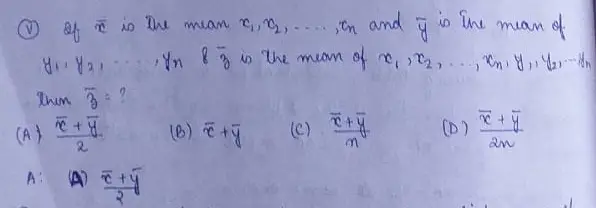 (V) If x̄ is the mean x₁, x₂, ....., xn and ȳ is the mean of
y₁, y₂, ......, yn & z̄ is the mean of x₁, x₂, ..., xn, y₁, y₂, ... yn
then z̄ = ?
(A) (x̄ + ȳ)/2 (B) x̄ + ȳ (C) (x̄ + ȳ)/n (D) (x̄ + ȳ)/2n
A: (A) (x̄ + ȳ)/2